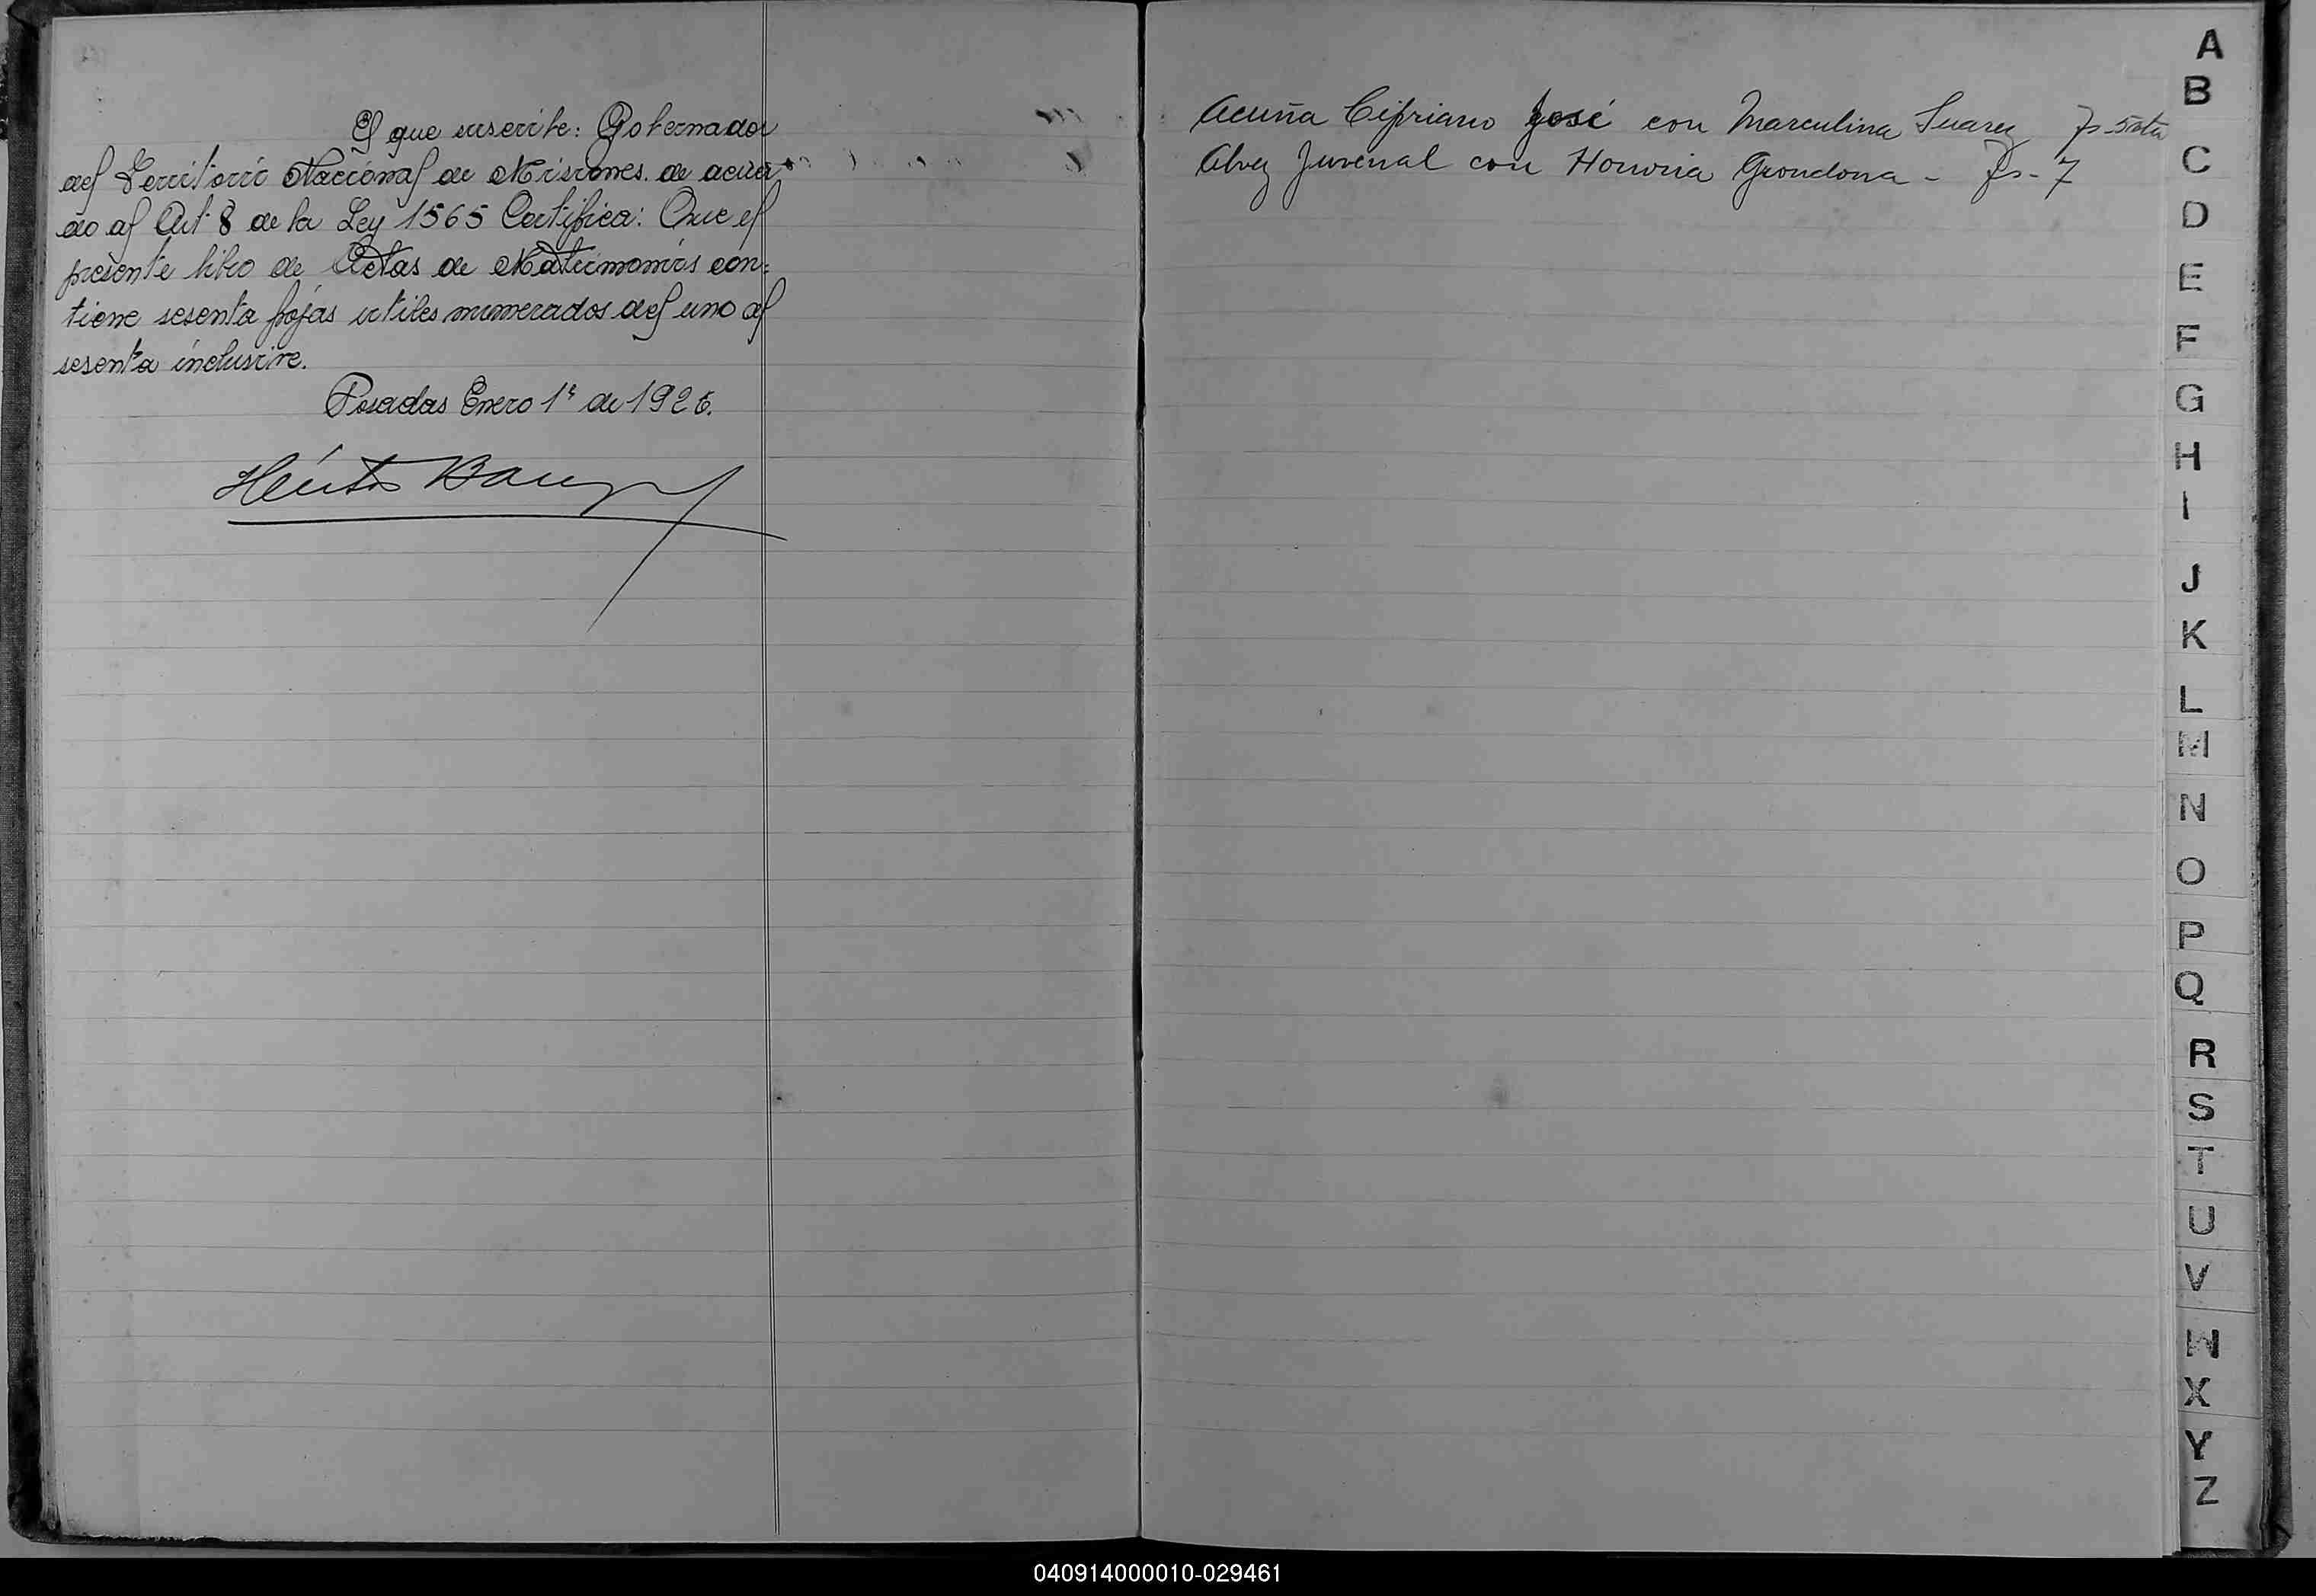 El que suscribe: Gobernador
del Territorio Nacional de Misiones. de acuer-
do al Art. 8 de la Ley 1565 Certifica: Que el
presente libro de Actas de Matrimonios con-
tiene sesenta fojas utiles numerados del uno al
sesenta inclusive.
Posadas Enero 1º de 1926.
Héctor
Acuña Cipriano José con Marculina Suarez fs 5vta
Alvez Juvenal con Honoria Grondona - fs - 7
A
B
C
D
E
F
G
H
I
J
K
L
M
N
O
P
Q
R
S
T
U
V
W
X
Y
Z
040914000010-029461